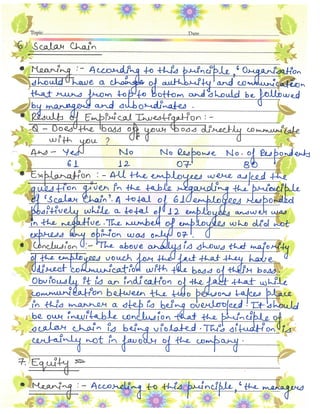 Topic Date
6. Scalar Chain
• Meaning :- According to this principle, 'Organisation
should have a change of authority and communication
that runs from top to bottom and should be followed
by managers and subordinates.
• Results of Empirical Investigation :-
Q - Does the boss of your boss directly communicate
with you ?
Ans - Yes No No Response No. of Respondents
61 12 07 80
• Explanation :- All the employees were asked the
question given in the table regarding the principle
of 'Scalar Chain'. A total of 61 employees responded
positively while a total of 12 employees answer was
in the negative. The number of employees who did not
express any opinion was only 07.
• Conclusion :- The above analysis shows that majority
of the employees vouch for the fact that they have
direct communication with the boss of their boss.
Obviously it is an indication of the fact that while
communication between the two persons takes place
in this manner a step is being overlooked. It should
be our inevitable conclusion that the principle of
scalar chain is being violated. This situation is
certainly not in favour of the company.
7. Equity =
• Meaning :- According to this principle, 'the managers